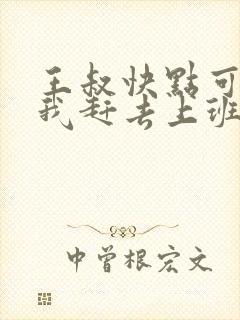 王叔快點可
我赶去上班
中曾根宏文